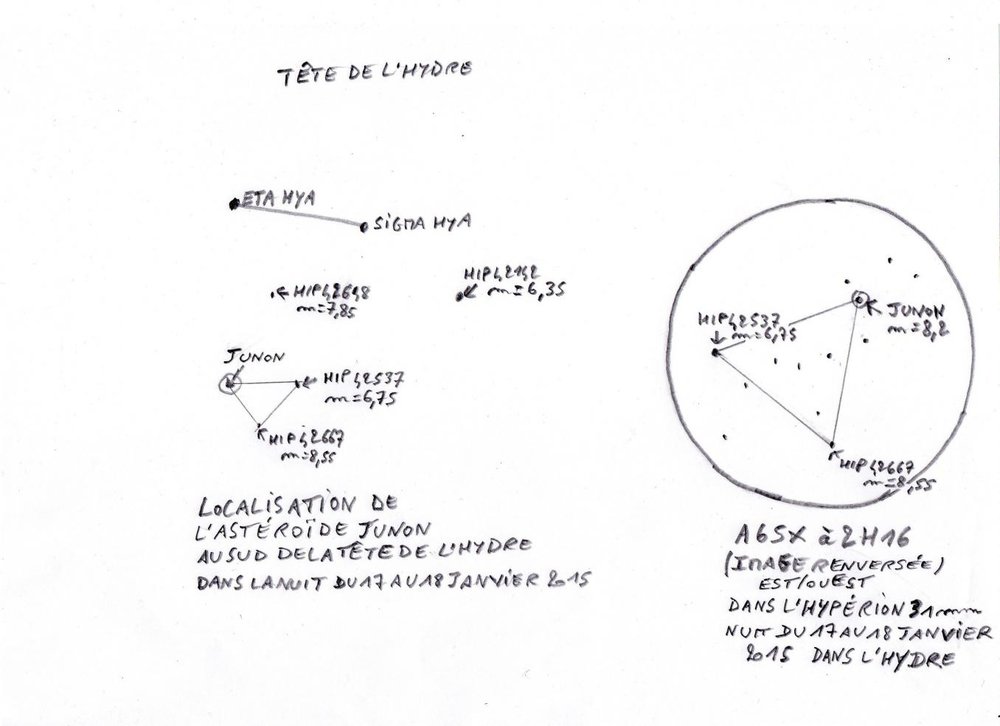 TÊTE DE L'HYDRE
ETA HYA
SIGMA HYA
HIP42142
m=6,35
HIP42648
m=7,85
JUNON
HIP42537
m=6,75
HIP42667
m=8,55
LOCALISATION DE
L'ASTÉROÏDE JUNON
AU SUD DE LA TÊTE DE L'HYDRE
DANS LA NUIT DU 17 AU 18 JANVIER 2015
JUNON
m=8,2
HIP42537
m=6,75
HIP42667
m=8,55
A 65X à 2H16
(IMAGE RENVERSÉE)
EST/OUEST
DANS L'HYPÉRION 31mm
NUIT DU 17 AU 18 JANVIER
2015 DANS L'HYDRE